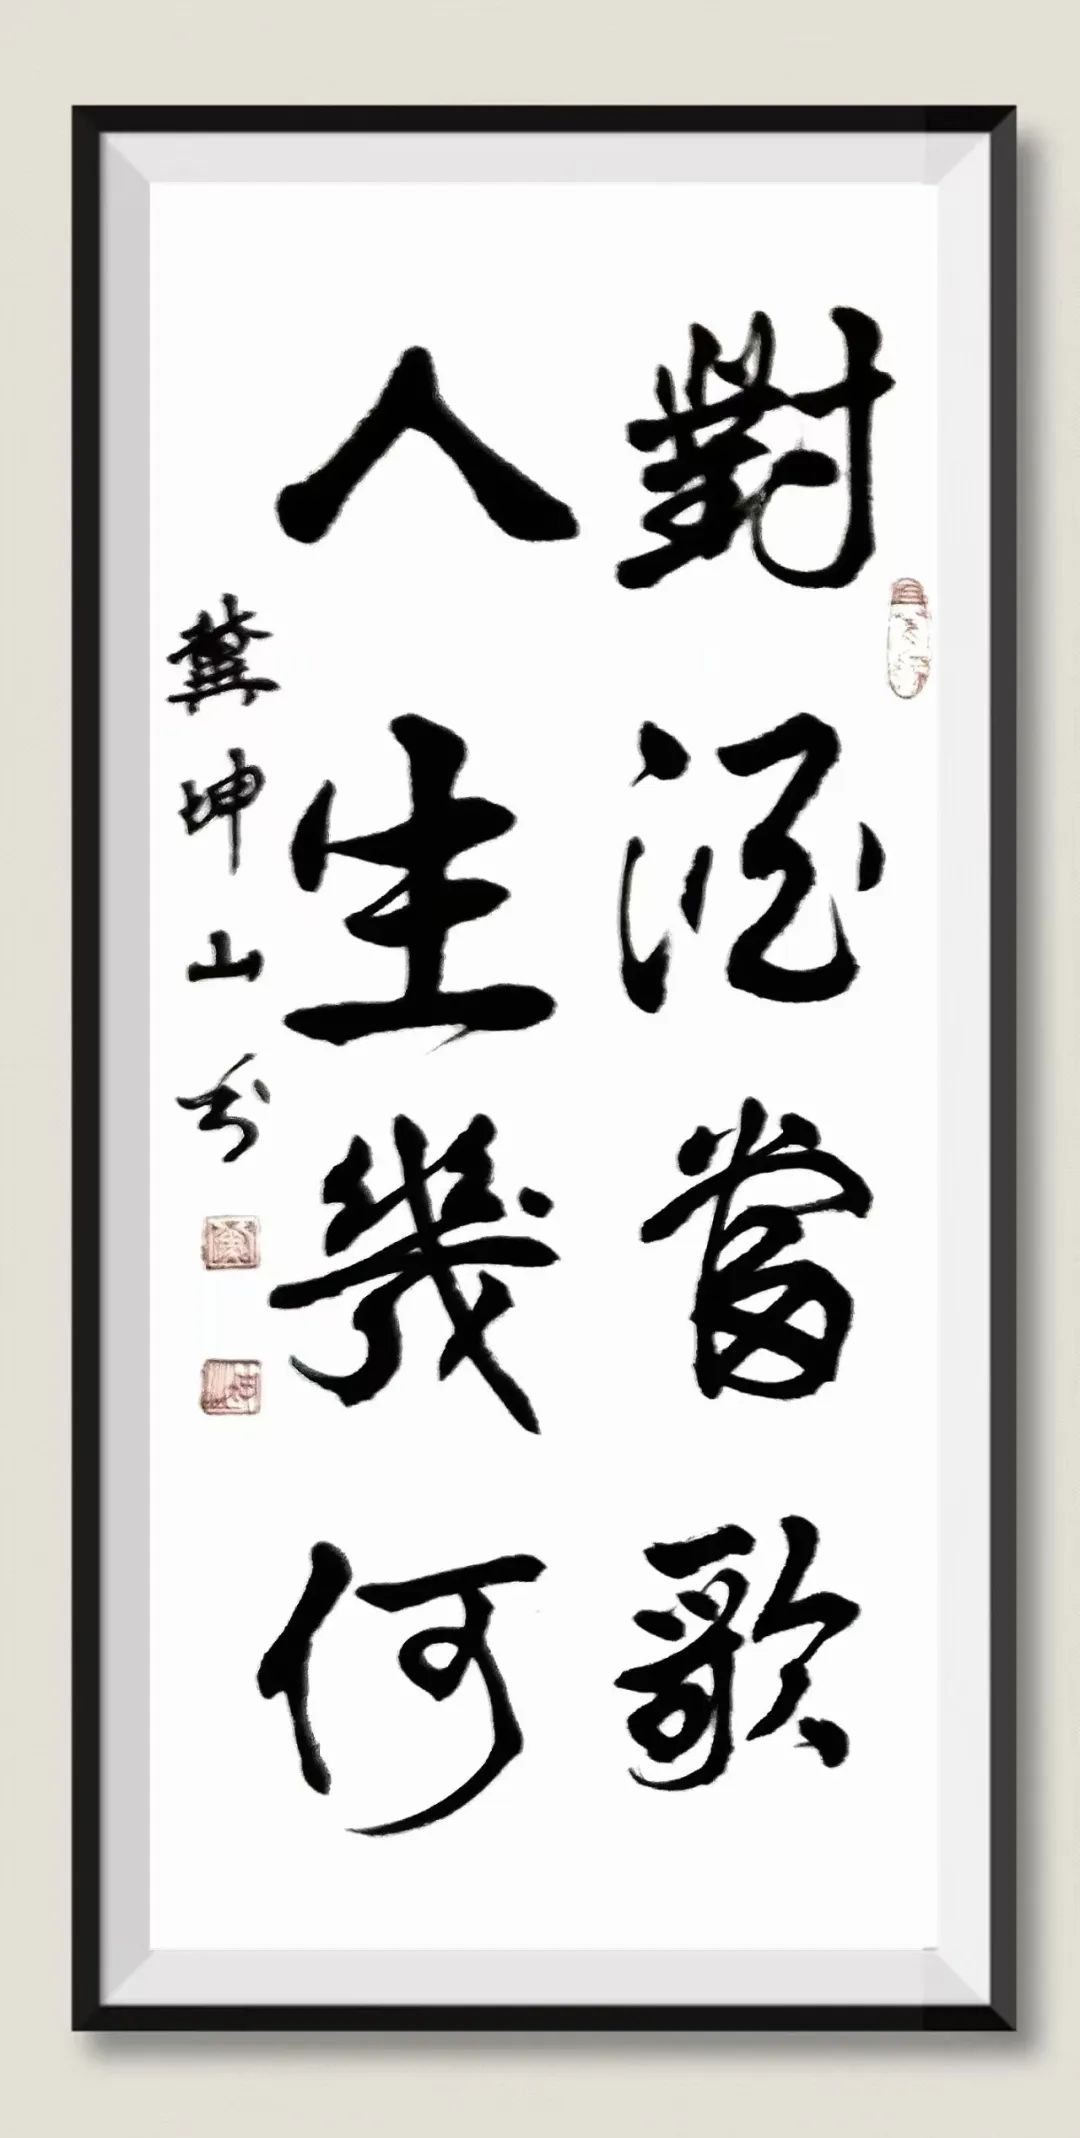 對酒當歌
人生幾何
坤山书